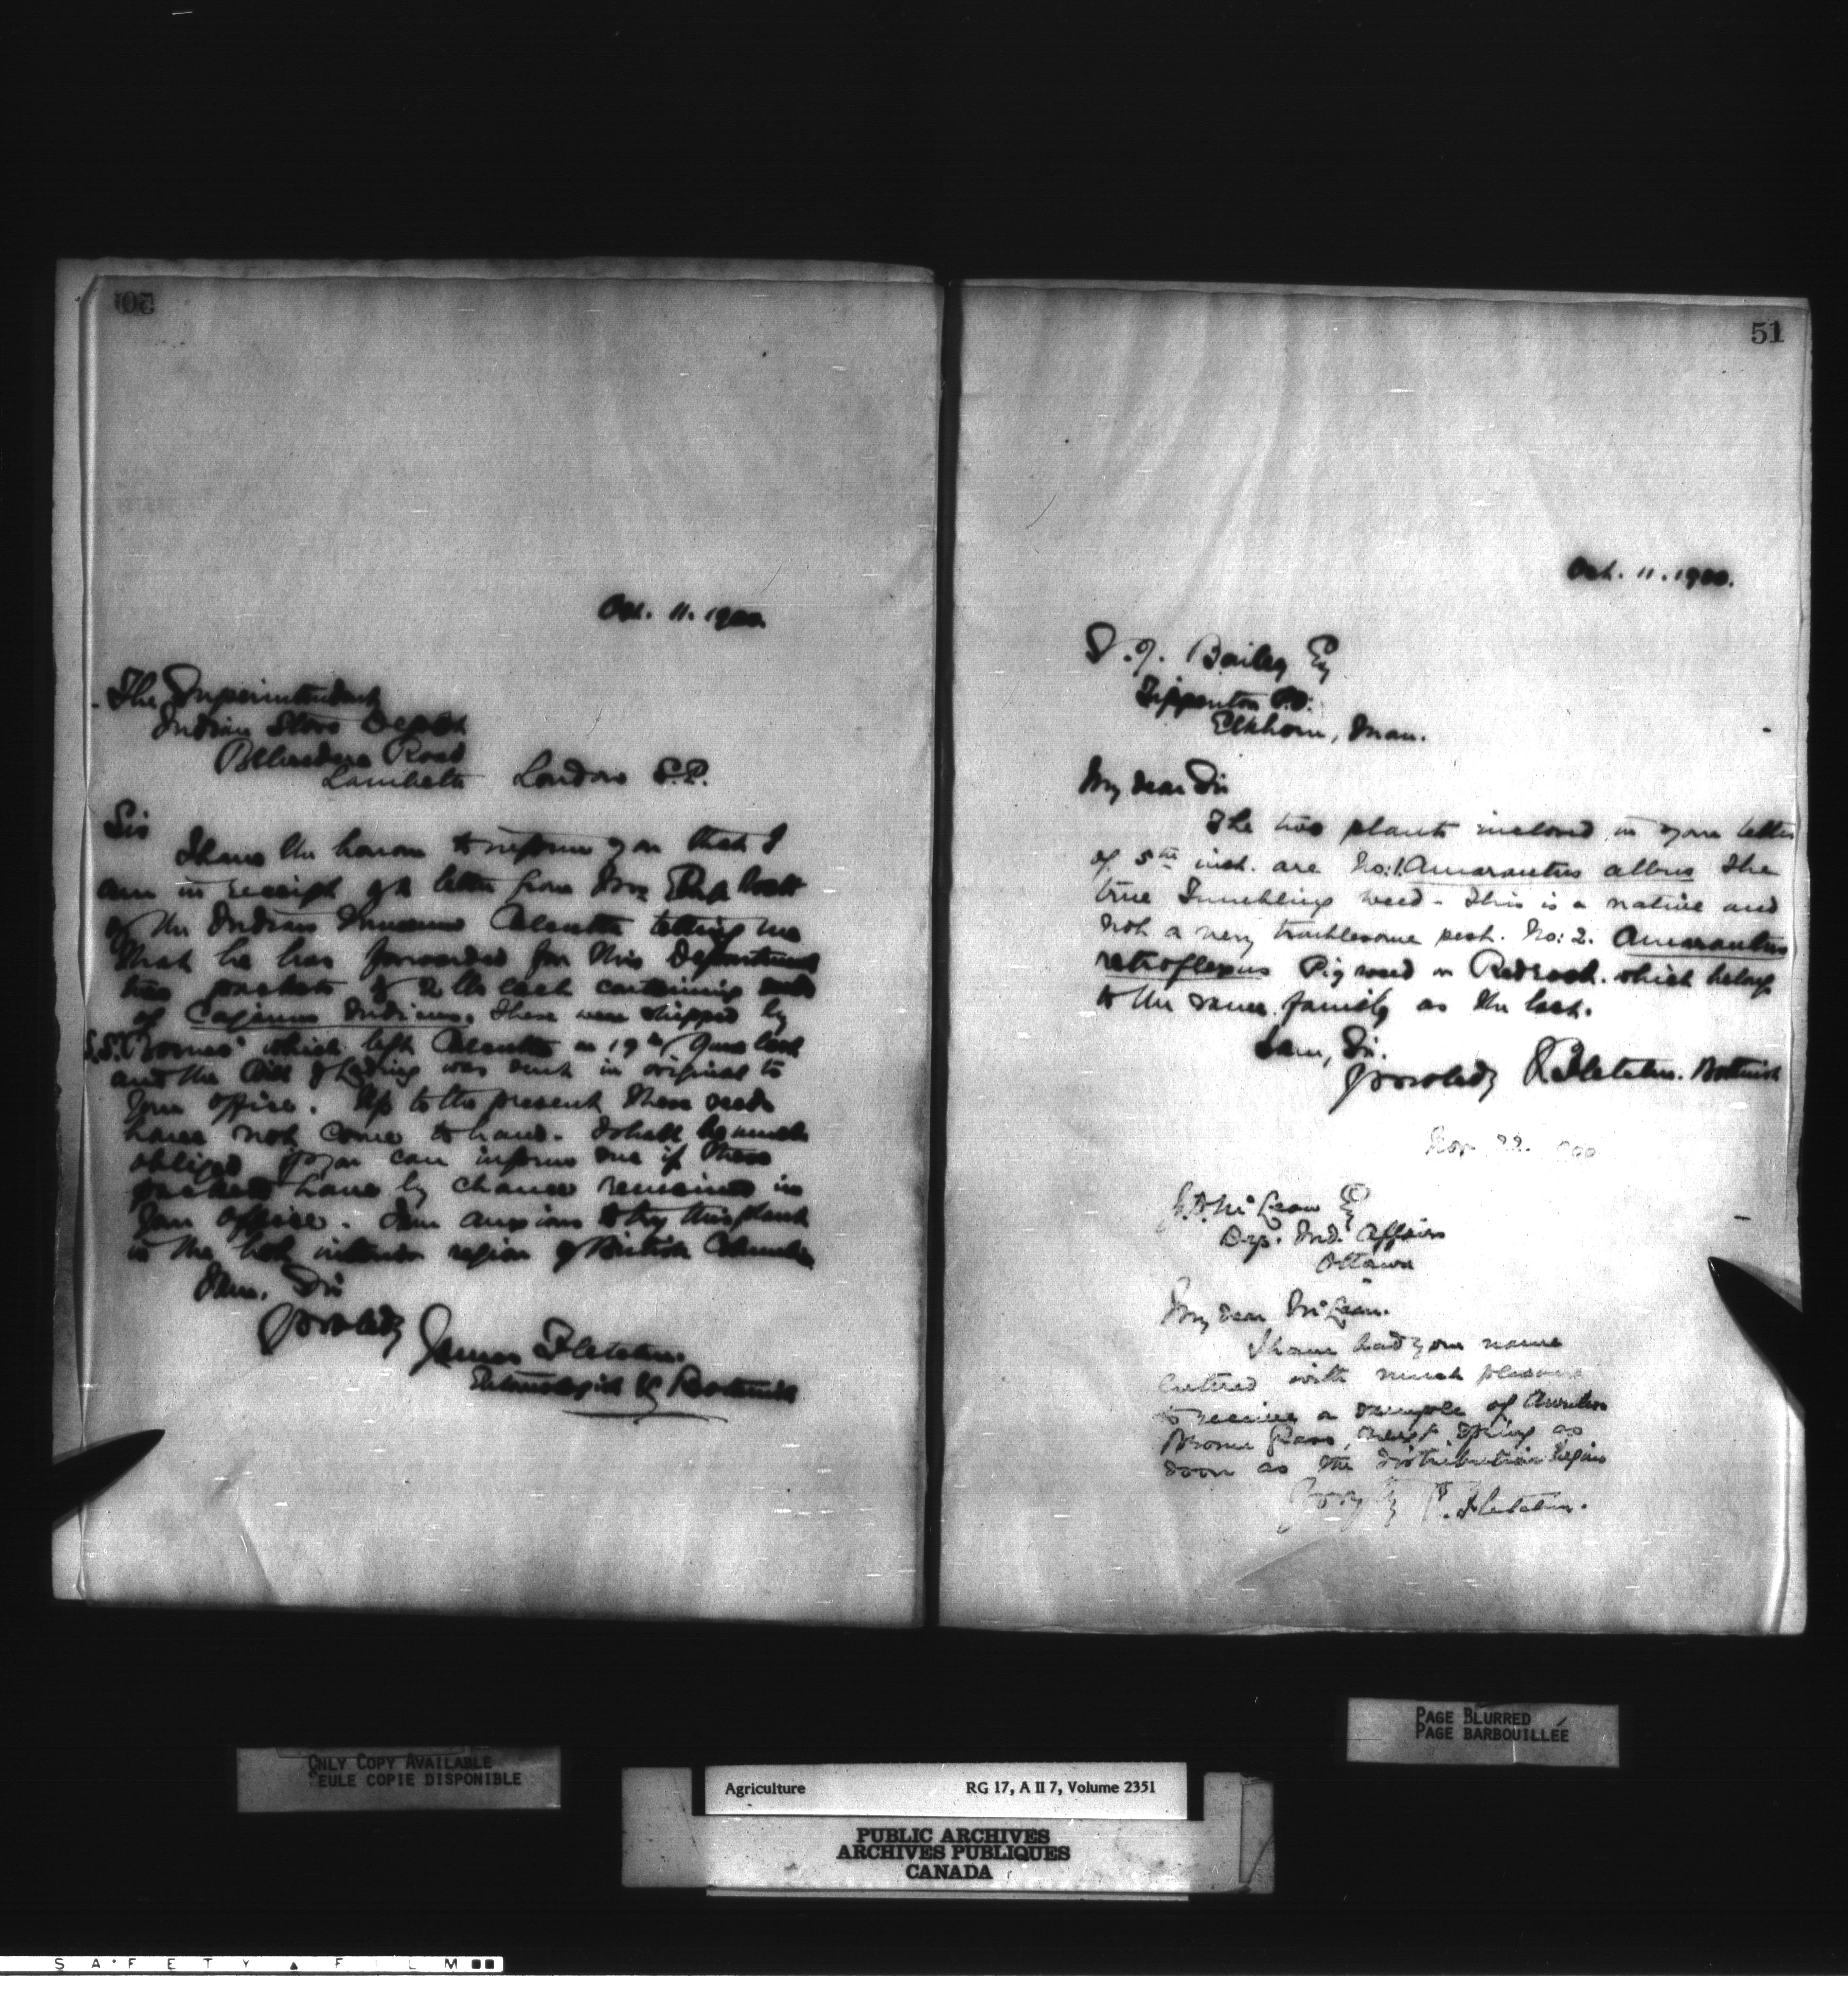 50
Oct. 11. 1900.
The Superintendent
Indian Store Depot
Belvedere Road
Lambeth London S.E.
Sir
I have the honour to inform you that I
am in receipt of a letter from Mr
of the Indian Museum Calcutta telling me
that he has forwarded for this Department
two packets of 2 lbs each containing seeds
of Cajanus Indicus. These were shipped by
S.S. which left Calcutta on 19th June last
and the Bill of Lading was sent in original to
your office. Up to the present these seeds
have not come to hand. I shall be much
obliged if you can inform me if these
packets have by chance remained in
your office. I am anxious to try this plant
in the hot interior region of British Columbia
I am, Sir
Yrs obedtly James Fletcher.
Entomologist & Botanist
51
Oct. 11. 1900.
Bailey Esq
Tippenton P.O.
Elkhorn, Man.
My dear Sir
The two plants inclosed in your letter
of 5th inst. are No: 1. Amarantus albus the
true Tumbling weed - This is a native and
not a very troublesome pest. No: 2. Amarantus
retroflexus Pig weed or Redroot. which belongs
to the same family as the last.
I am, Sir.
Yrs obedtly J. Fletcher. Botanist
Nov 22. 1900
J. D. McLean Esq
Dep. Ind. Affairs
Ottawa
My dear McLean.
I have had your name
entered with much pleasure
to receive a sample of Awnless
Brome Grass, next Spring as
soon as the distribution begins
J. Fletcher.
ONLY COPY AVAILABLE
SEULE COPIE DISPONIBLE
PAGE BLURRED
PAGE BARBOUILLÉE
Agriculture RG 17, A II 7, Volume 2351
PUBLIC ARCHIVES
ARCHIVES PUBLIQUES
CANADA
SAFETY ▲ FILM